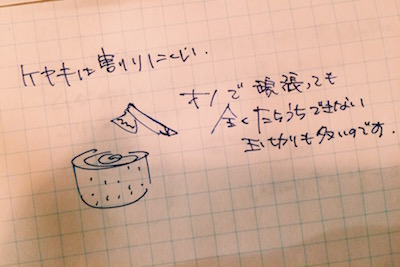 ケヤキは割りにくい.
オノで頑張っても
全くたちうちできない
玉切りも多いのです.